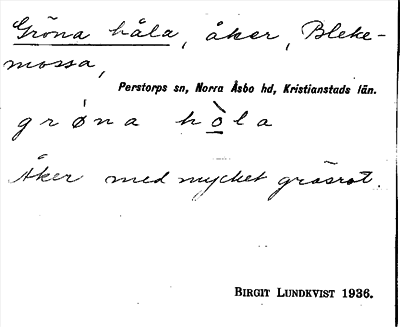 Gröna håla, åker, Bleke-
mossa,
Perstorps sn, Norra Åsbo hd, Kristianstads län.
grǿna hò̲la
Åker med mycket gräsrot.
BIRGIT LUNDKVIST 1936.